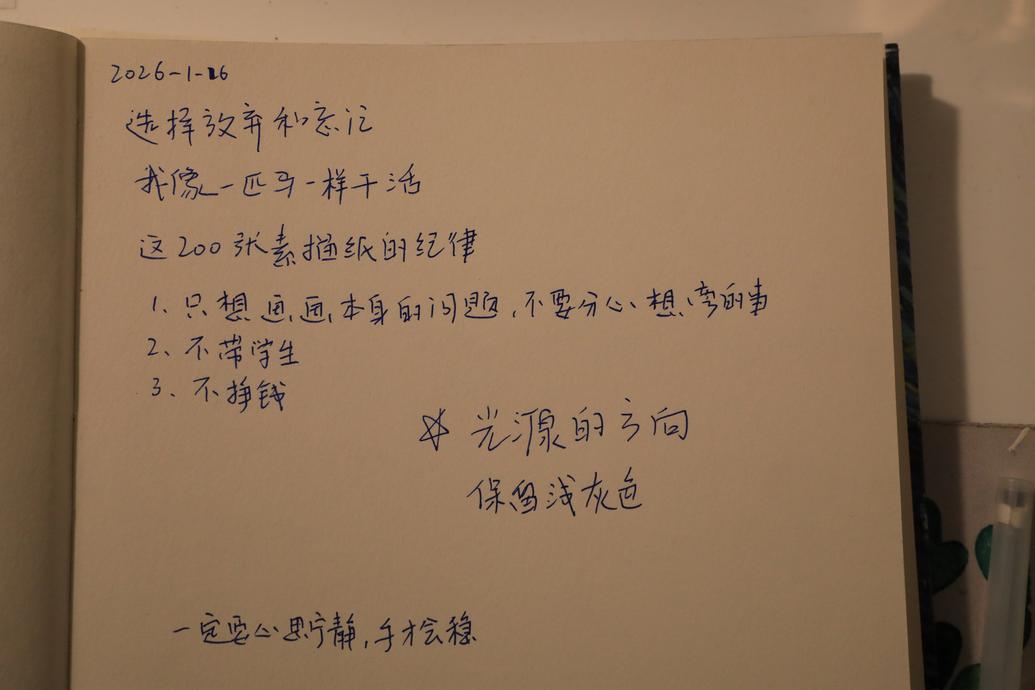 2026-1-16
选择放弃和忘记
我像一匹马一样干活
这200张素描纸的纪律
1、只想画画本身的问题，不要分心想别的事
2、不带学生
3、不挣钱
☆ 光源的方向
保留浅灰色
一定要心思宁静，手才会稳